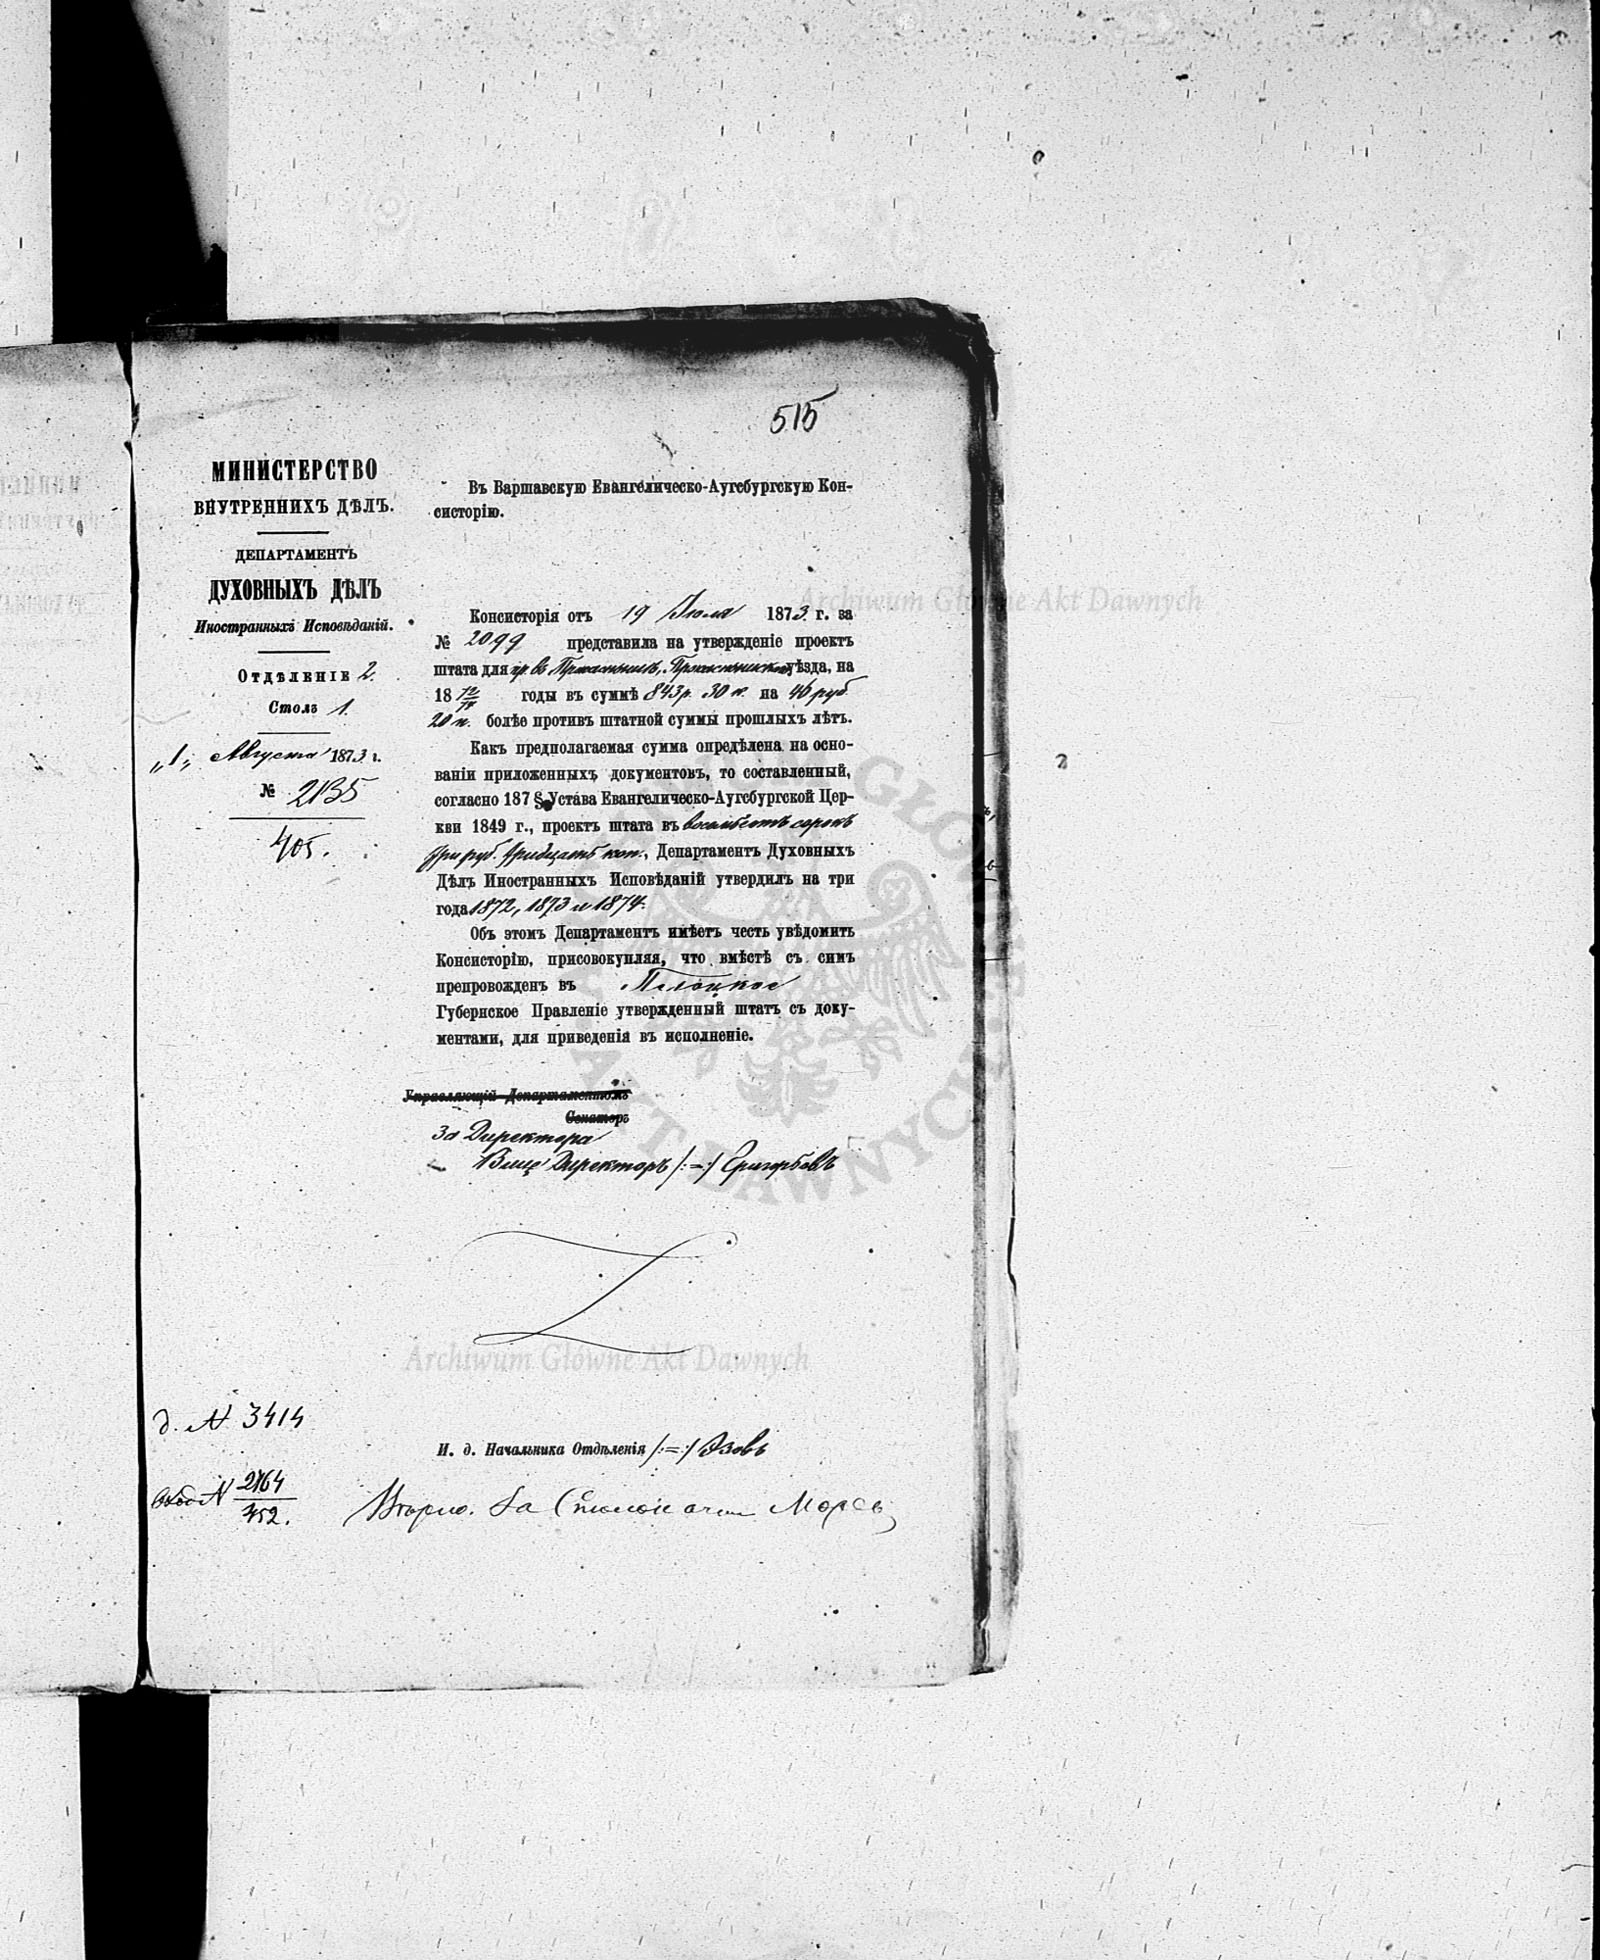 515
МИНИСТЕРСТВО
ВНУТРЕННИХЪ ДѢЛЪ.
ДЕПАРТАМЕНТЪ
ДУХОВНЫХЪ ДѢЛЪ
Иностранныхъ Исповѣданій.
ОТДѢЛЕНІЕ 2.
Столъ 1.
„1„ Августа 1873 г.
№ 2135
405.
Въ Варшавскую Евангелическо-Аугсбургскую Кон-
систорію.
Консисторія отъ 19 Іюля 1873 г. за
№ 2099 представила на утвержденіе проектъ
штата для въ уѣзда, на
18 72/74 годы въ суммѣ 843 р. 30 к. на 46 руб.
20 к. болѣе противъ штатной суммы прошлыхъ лѣтъ.
Какъ предполагаемая сумма опредѣлена на осно-
ваніи приложенныхъ документовъ, то составленный,
согласно 187 § Устава Евангелическо-Аугсбургской Цер-
кви 1849 г., проектъ штата въ восемьсотъ сорокъ
три руб. тридцать коп., Департаментъ Духовныхъ
Дѣлъ Иностранныхъ Исповѣданій утвердилъ на три
года 1872, 1873 и 1874.
Объ этомъ Департаментъ имѣетъ честь увѣдомить
Консисторію, присовокупляя, что вмѣстѣ съ симъ
препровожденъ въ Плоцкое
Губернское Правленіе утвержденный штатъ съ доку-
ментами, для приведенія въ исполненіе.
Управляющій Департаментомъ
Сенаторъ
За Директора
Вице Директоръ /:=:/ Григорьевъ
д. N 3414
И. д. Начальника Отдѣленія /:=:/ Эзовъ
вход N 2764/452.
Вѣрно. За
Archiwum Główne Akt Dawnych
Archiwum Główne Akt Dawnych